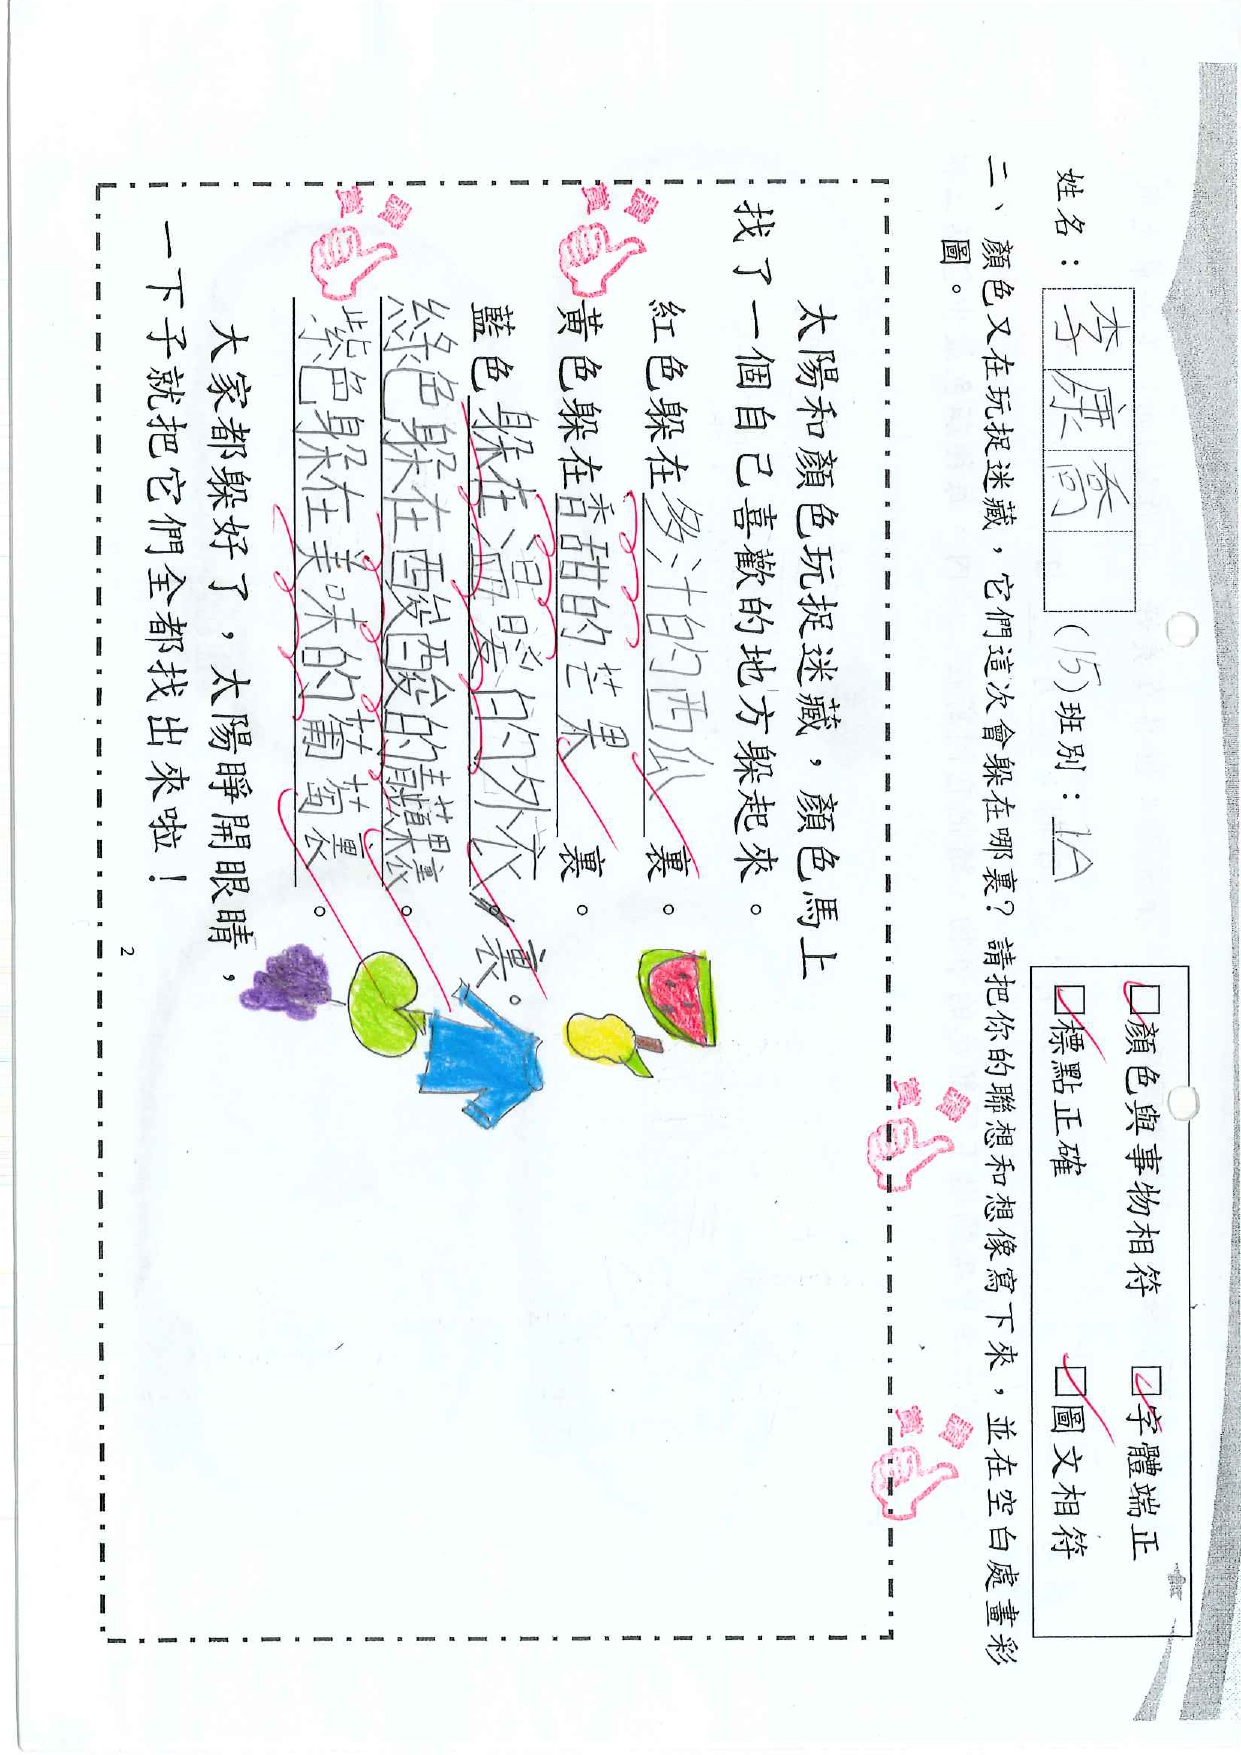 姓名：李康喬（15）班別：1A
□顏色與事物相符 □字體端正
□標點正確 □圖文相符
二、顏色又在玩捉迷藏，它們這次會躲在哪裏？請把你的聯想和想像寫下來，並在空白處畫彩
圖。
太陽和顏色玩捉迷藏，顏色馬上
找了一個自己喜歡的地方躲起來。
紅色躲在多汁的西瓜裏。
黃色躲在香甜的芒果裏。
藍色躲在溫暖的外衣裏。
綠色躲在酸酸的青蘋果裏。
紫色躲在美味的葡萄裏。
大家都躲好了，太陽睜開眼睛，
一下子就把它們全都找出來啦！
2